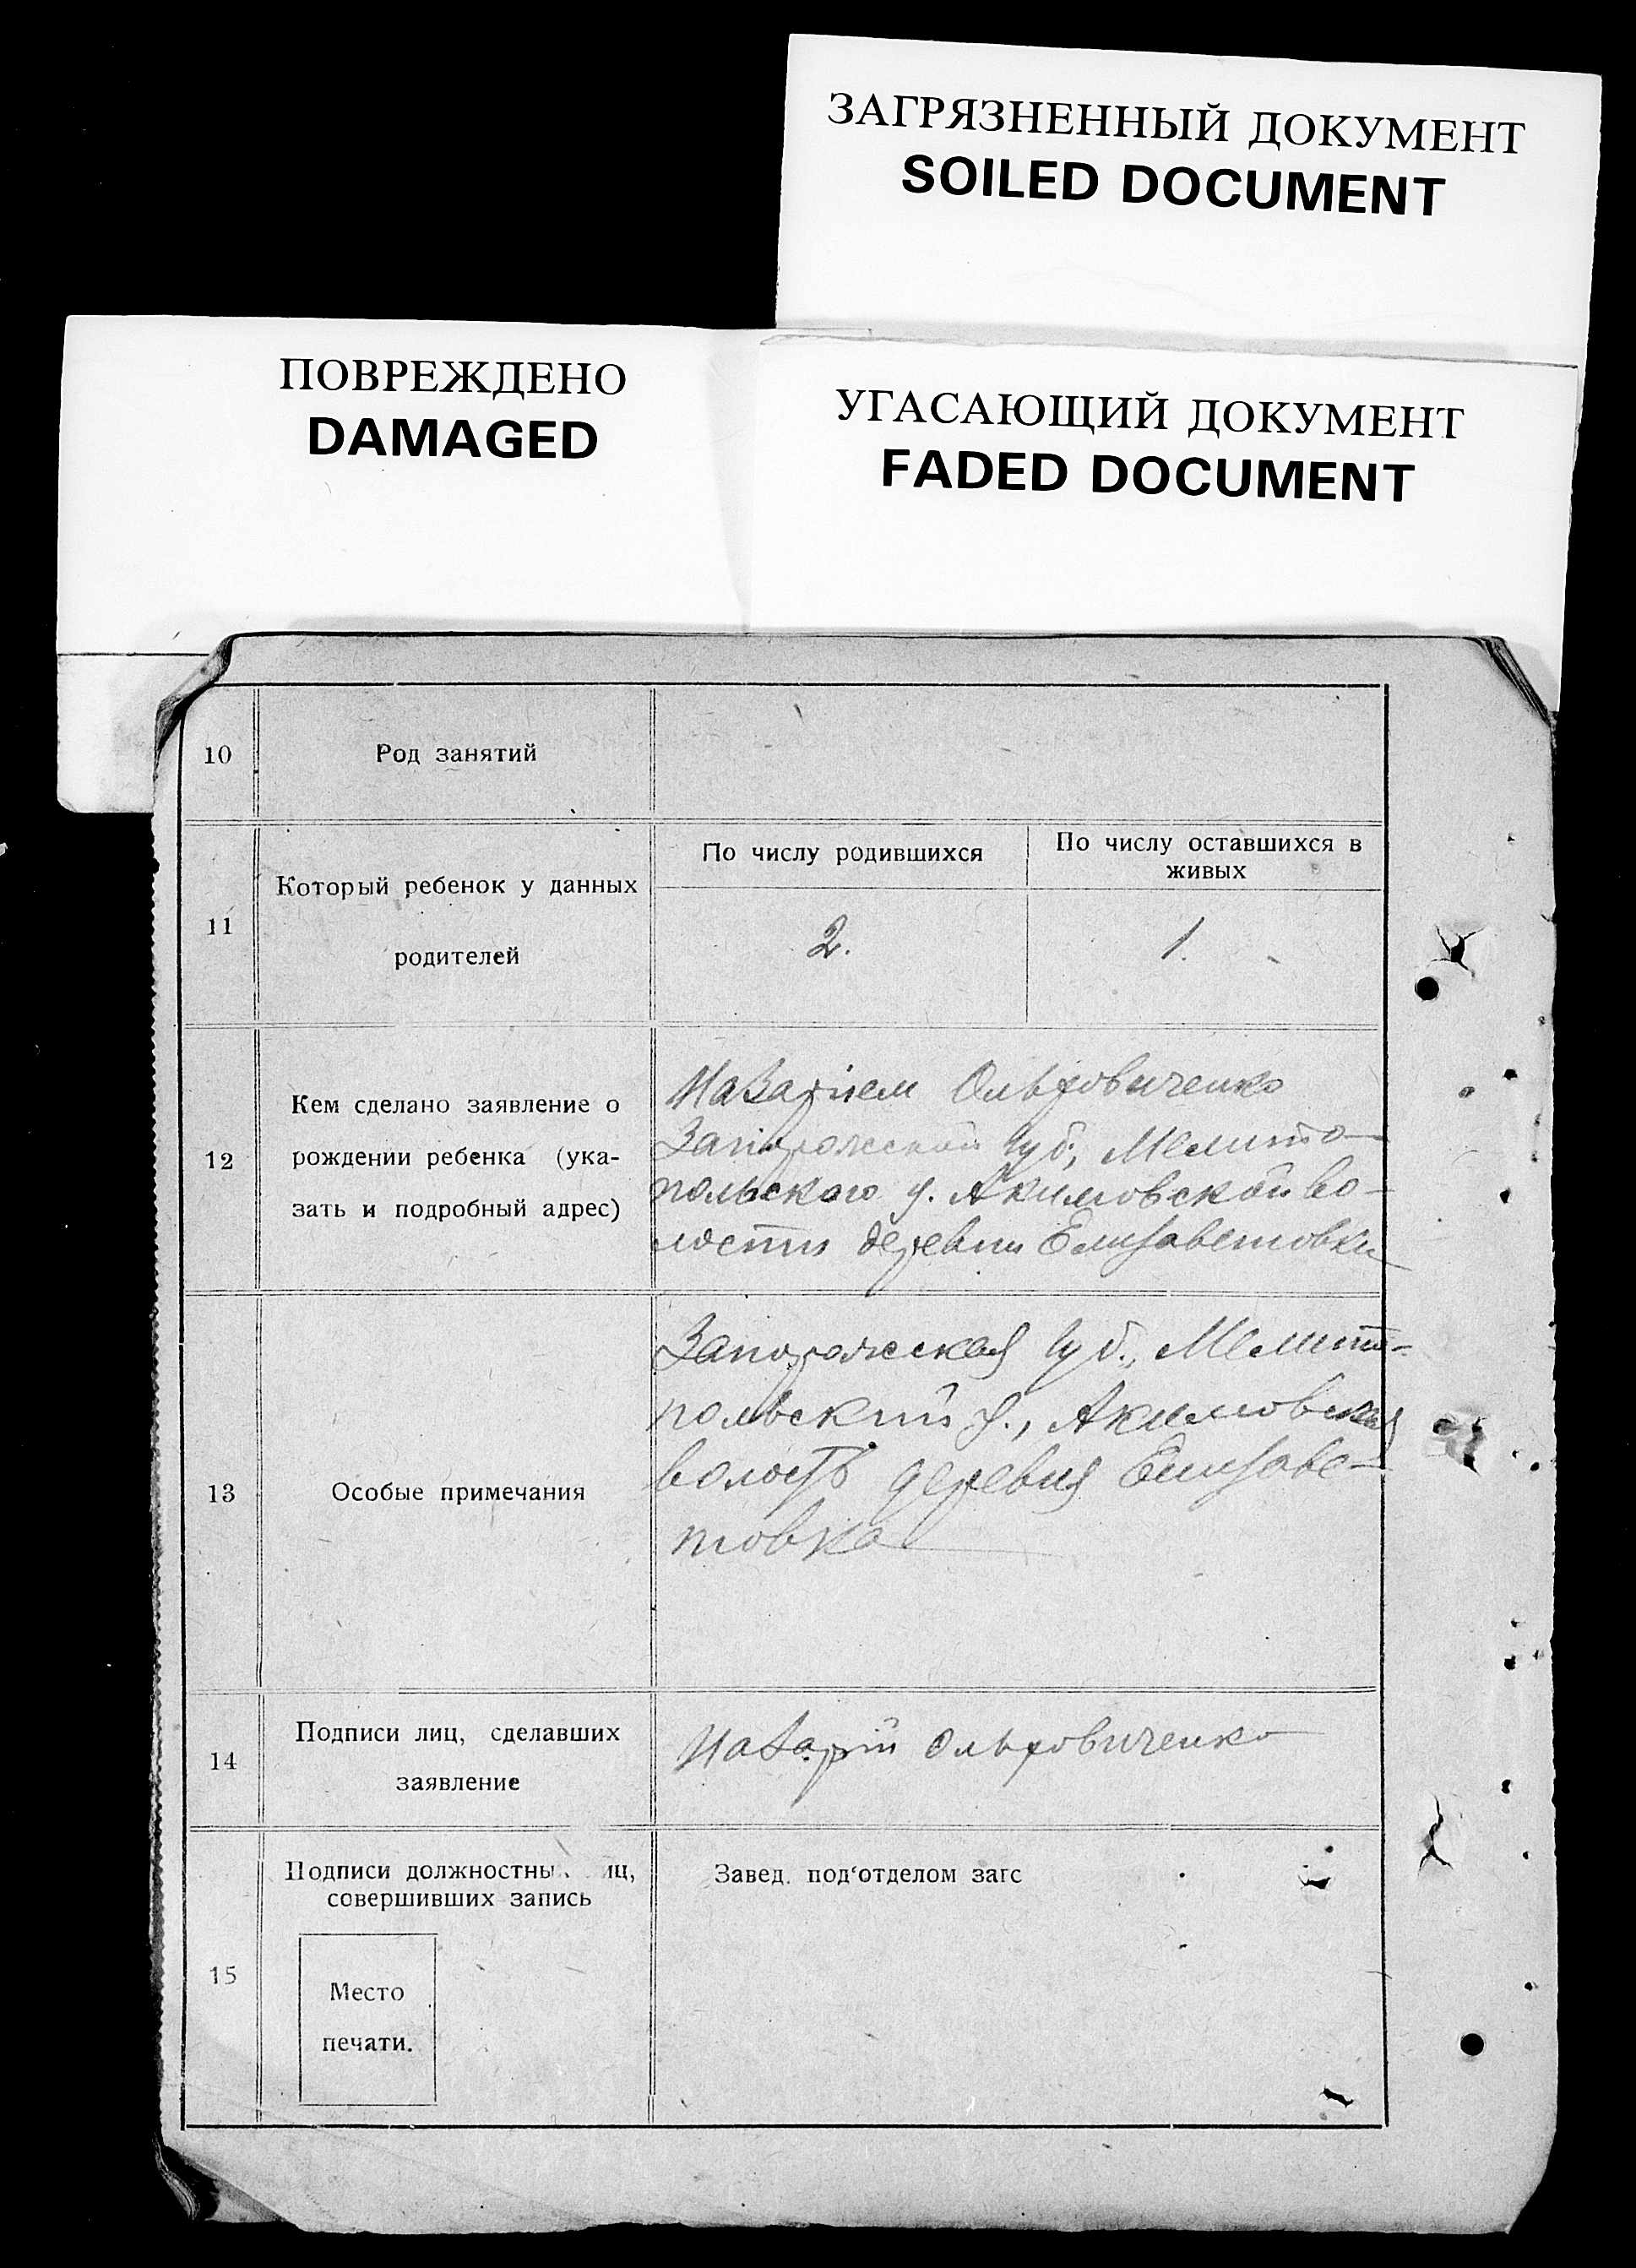 ЗАГРЯЗНЕННЫЙ ДОКУМЕНТ
SOILED DOCUMENT
ПОВРЕЖДЕНО
DAMAGED
УГАСАЮЩИЙ ДОКУМЕНТ
FADED DOCUMENT
10
Род занятий
11
Который ребенок у данных
родителей
По числу родившихся
По числу оставшихся в
живых
2.
1.
12
Кем сделано заявление о
рождении ребенка (ука-
зать и подробный адрес)
Назарiем Ольховиченко
Запорожской губ., Мелито-
польского у. Акимовской во-
лости деревни Елизаветовки
13
Особые примечания
Запорожская губ., Мелито-
польский у., Акимовская
волость деревня Елизаве-
товка
14
Подписи лиц, сделавших
заявление
Назарiй Ольховиченко
15
Подписи должностны иц,
совершивших запись
Место
печати.
Завед. под'отделом загс